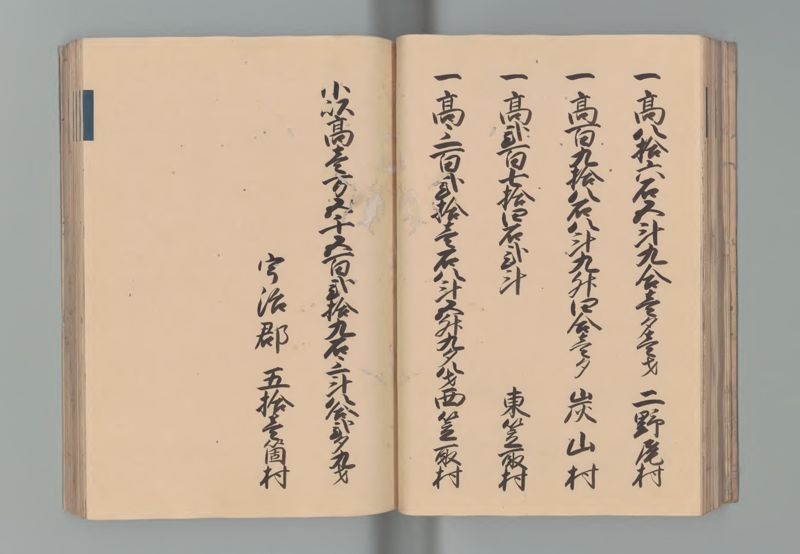 一高八拾六石五斗九合壱夕壱才 二野尾村
一高百九拾八石八斗九升四合壱夕 炭山村
一高弐百七拾四石弐斗 東笠取村
一高三百弐拾壱石八斗五升九夕八才 西笠取村
小以高壱万五千五百弐拾九石三斗八合弐夕九才
宇治郡 五拾壱箇村